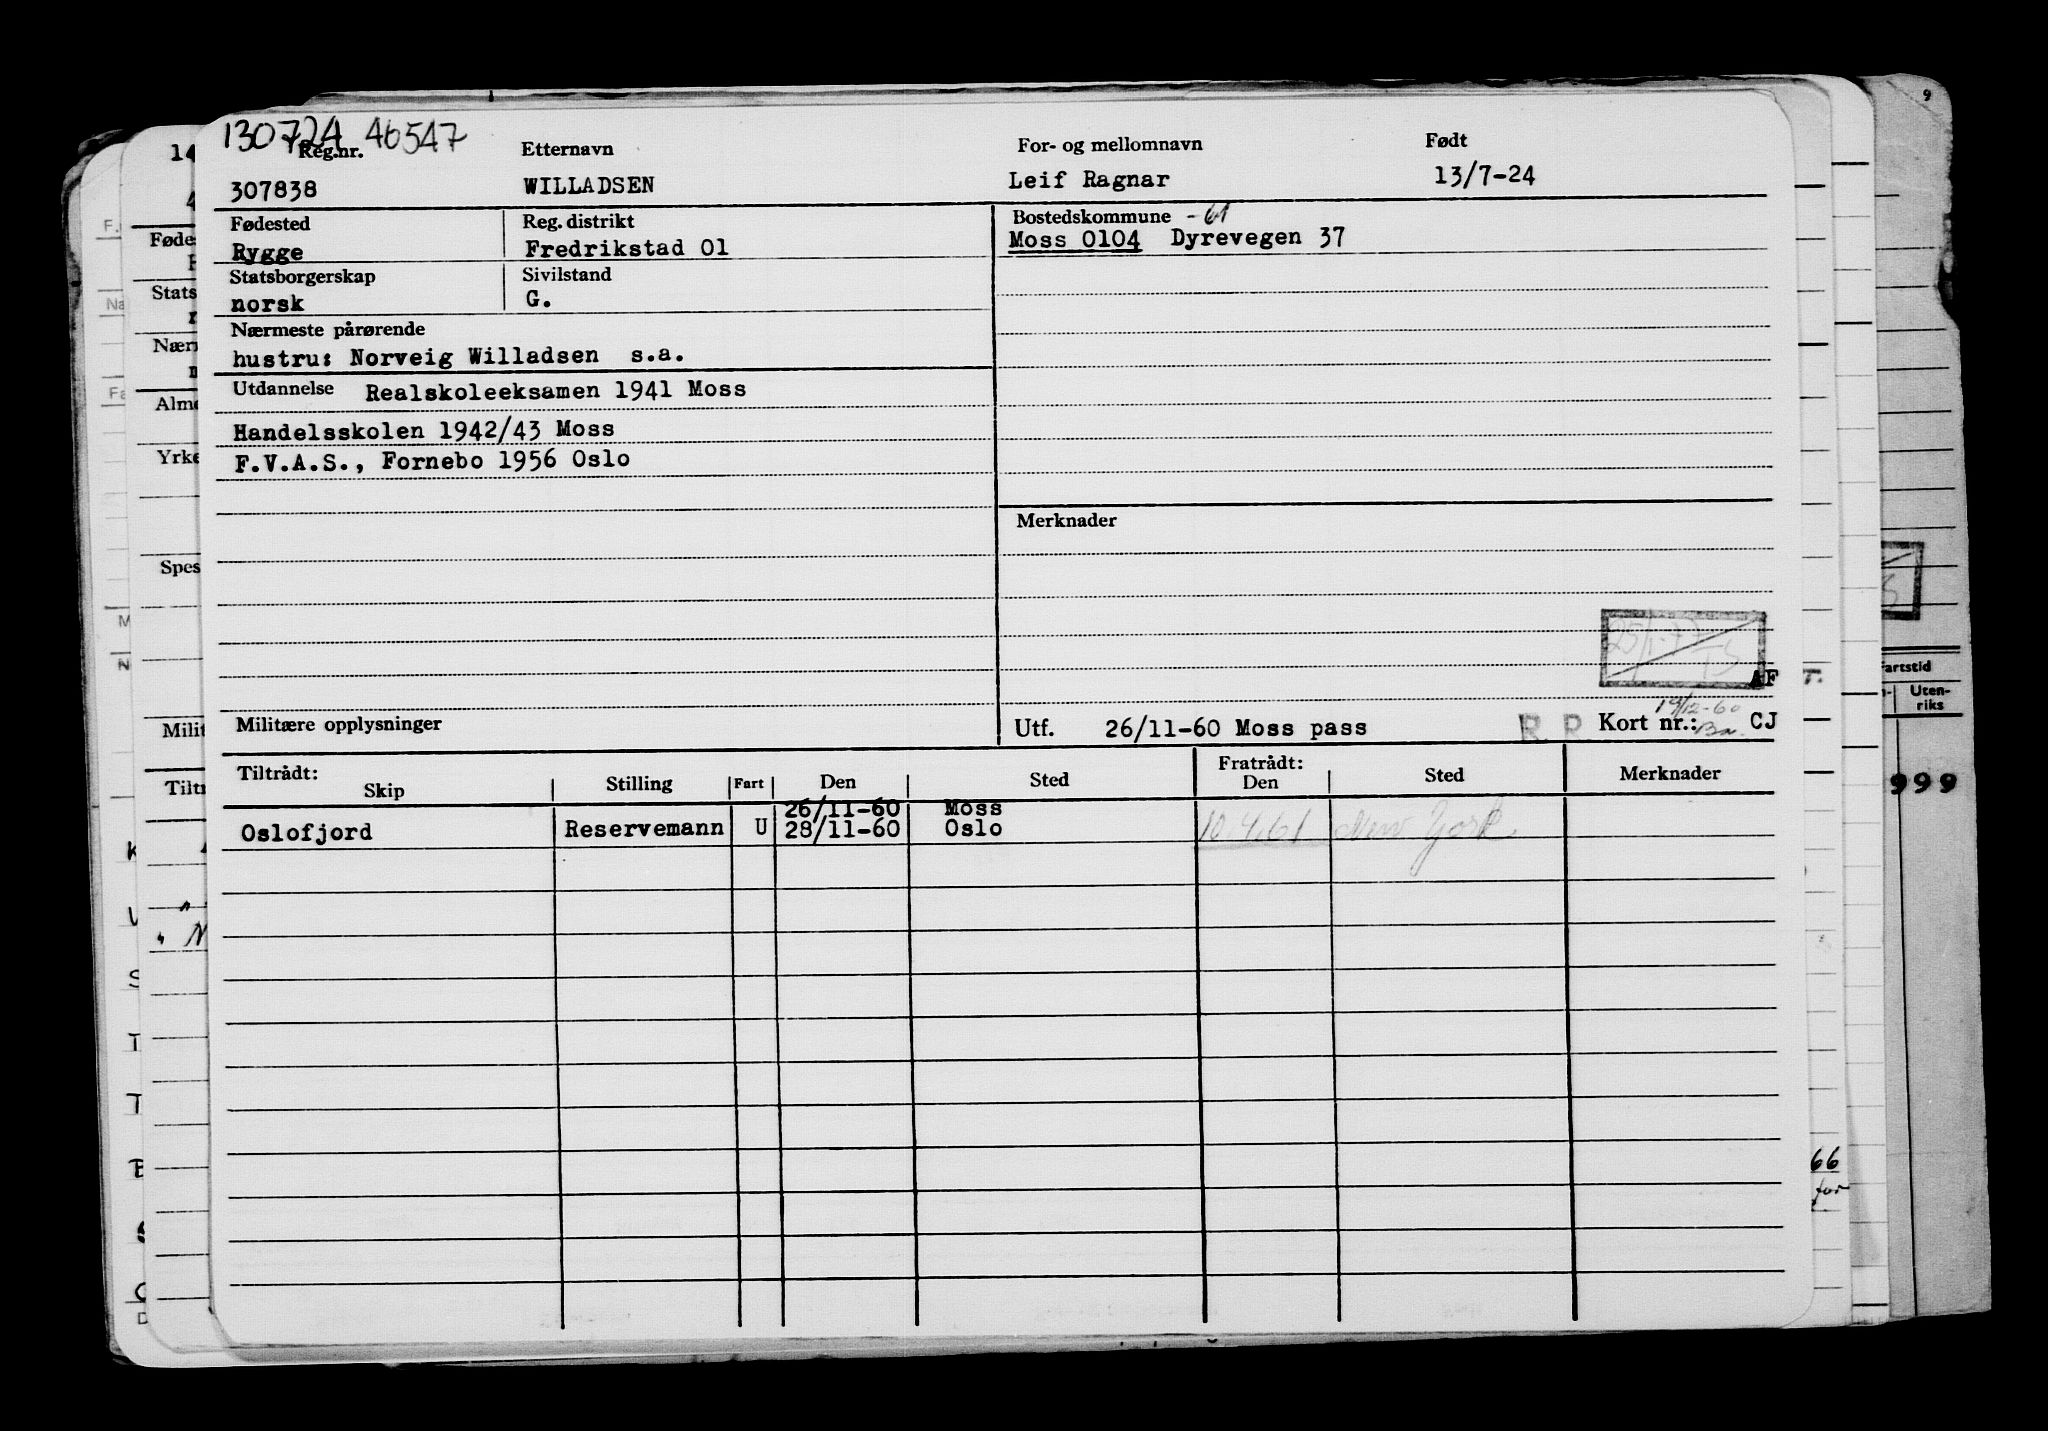 130724 46547
Reg.nr. Etternavn For- og mellomnavn Født
307838 WILLADSEN Leif Ragnar 13/7-24
Fødested Reg. distrikt Bostedskommune -61
Rygge Fredrikstad 01 Moss 0104 Dyrevegen 37
Statsborgerskap Sivilstand
norsk G.
Nærmeste pårørende
hustru: Norveig Willadsen s.a.
Utdannelse Realskoleeksamen 1941 Moss
Handelsskolen 1942/43 Moss
F.V.A.S., Fornebo 1956 Oslo
Merknader
25/1-77
TS
AF
19/12-60
Militære opplysninger Utf. 26/11-60 Moss pass R R Kort nr.: CJ
Tiltrådt: Skip Stilling Fart Den Sted Fratrådt: Den Sted Merknader
26/11-60 Moss
Oslofjord Reservemann U 28/11-60 Oslo 10.4.61 New York
artstid
Uten-
riks
999
66
for